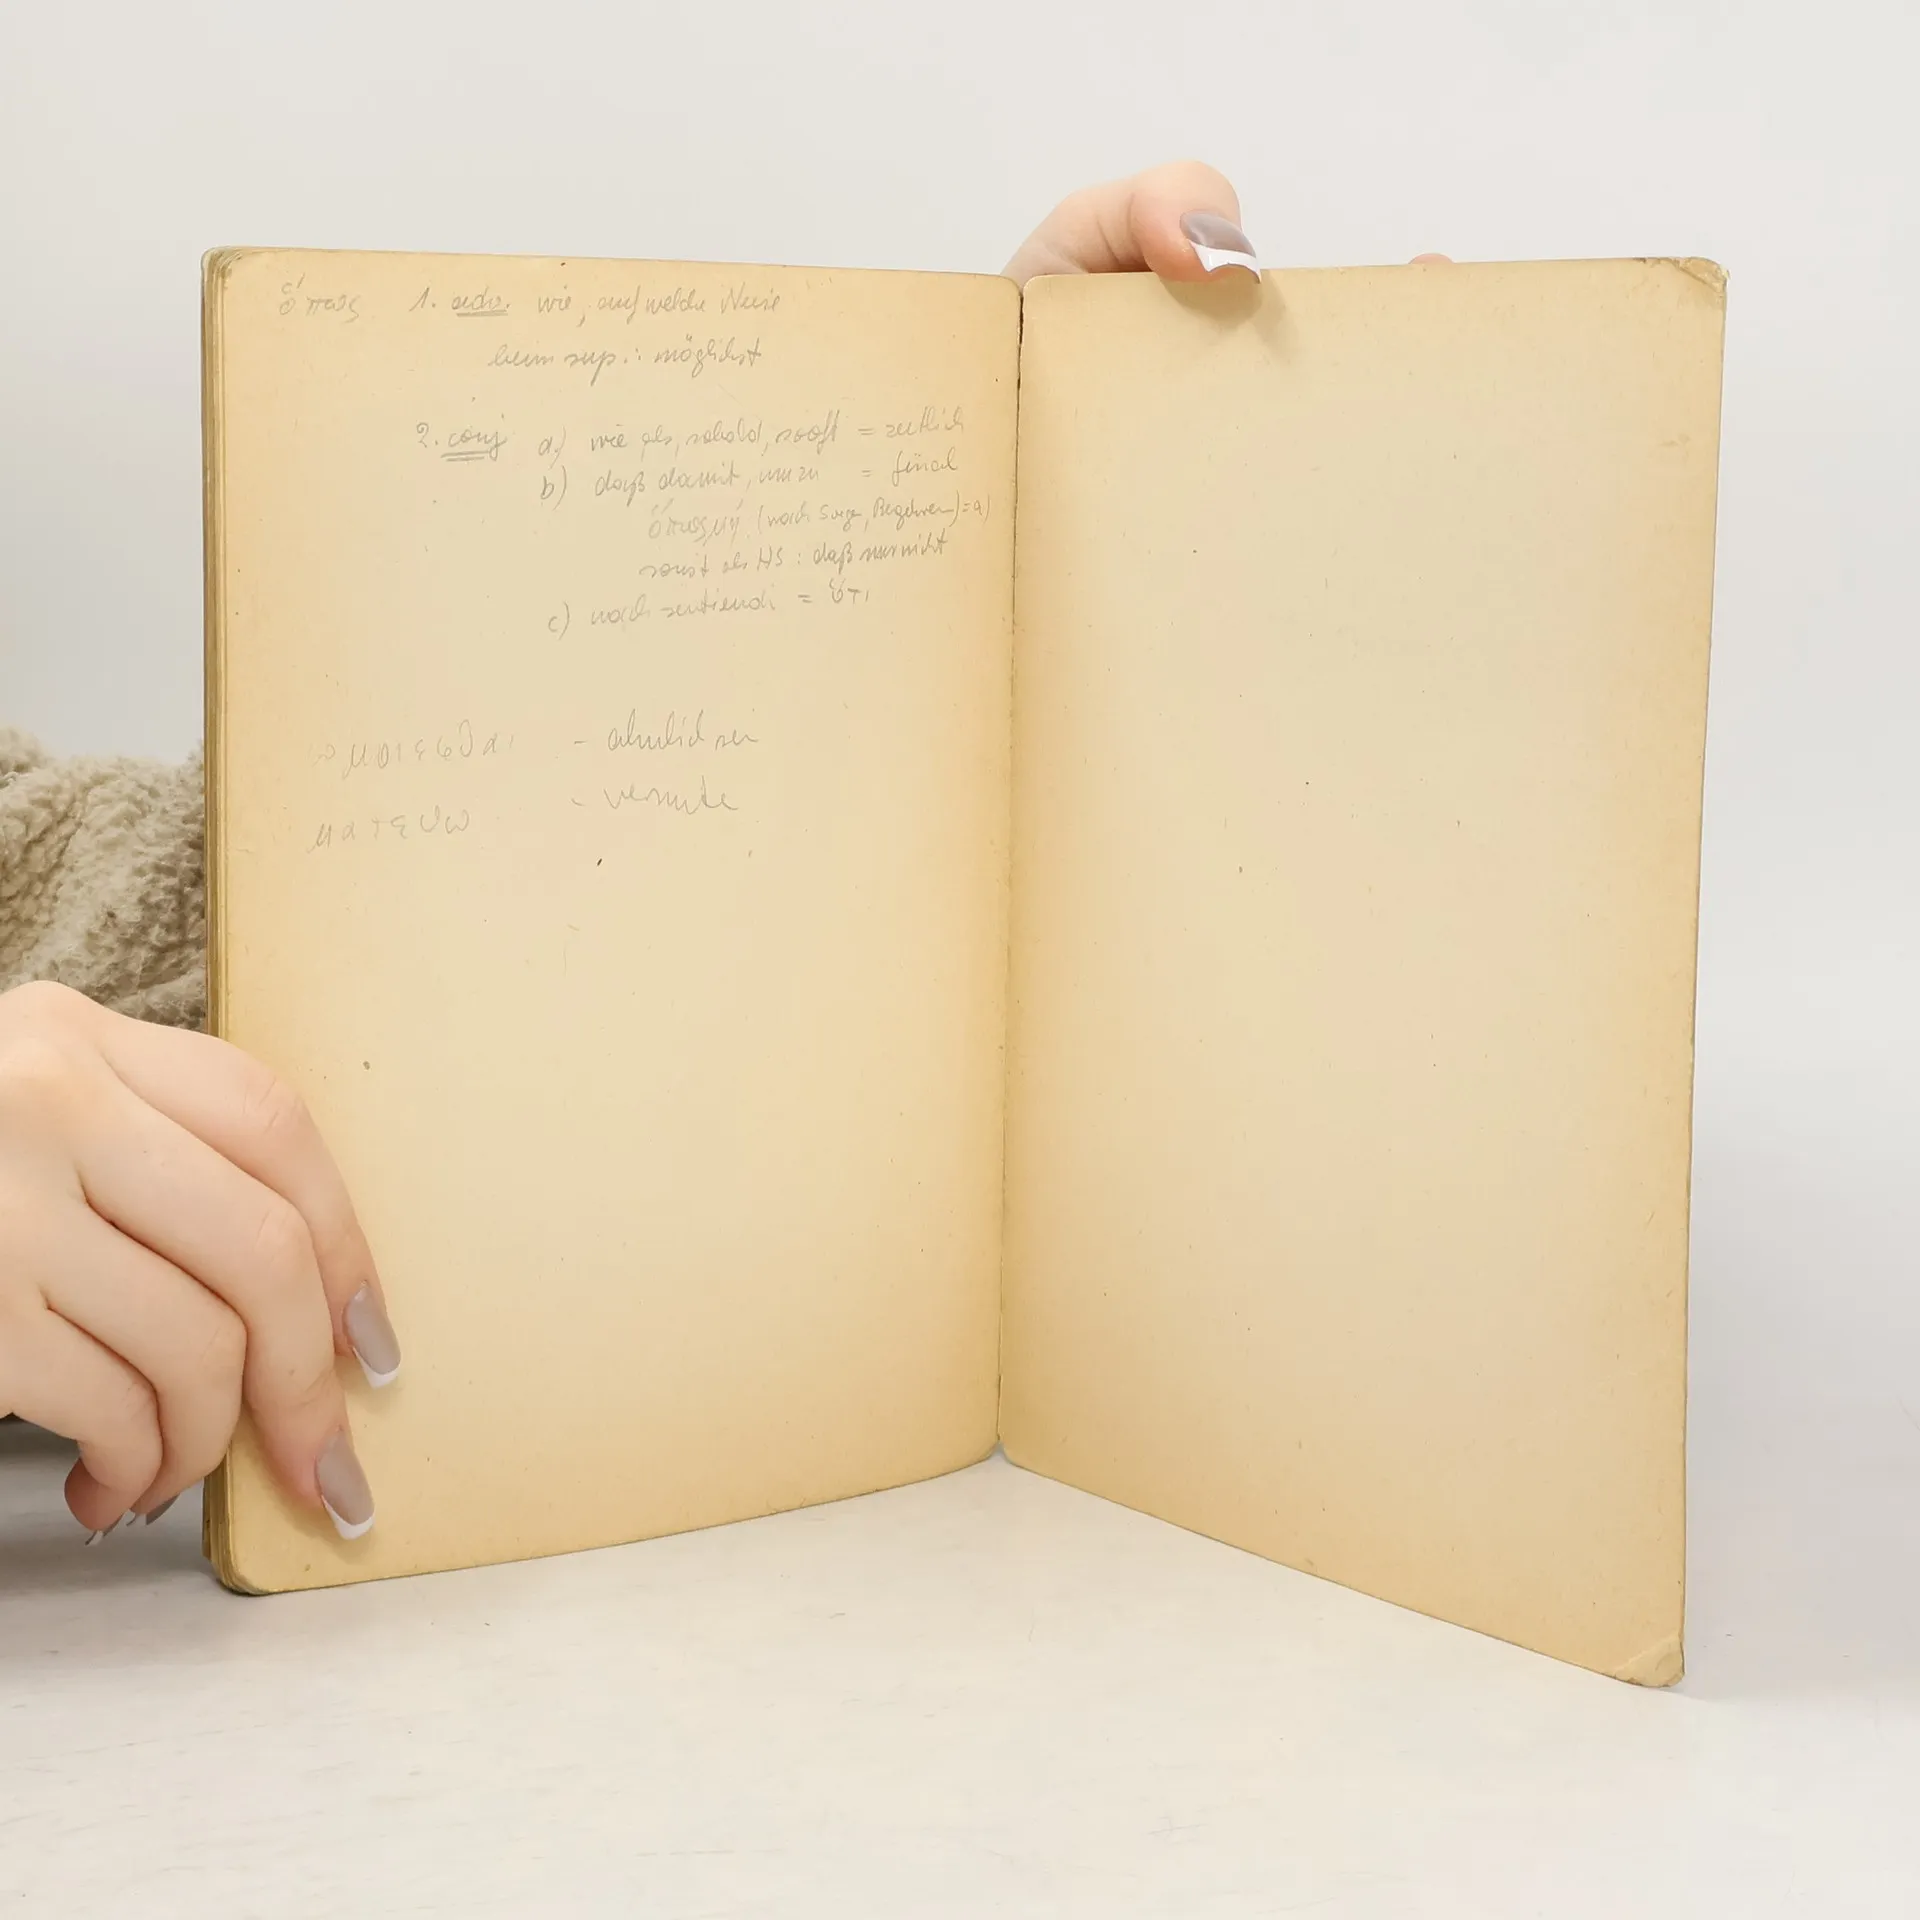 ὅπως 1. adv. wie, auf welche Weise
beim sup.: möglichst
2. conj a) wie, als, sobald, sooft = zeitlich
b) daß damit, um zu = final
ὅπως μή (nach Sorge, Begehren) = a)
sonst als HS : daß nur nicht
c) nach sentiendi = ὅτι
- ähnlich sei
ματευω - vermute